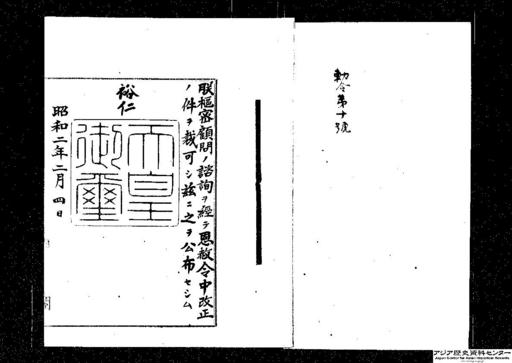 勅令第十號
朕樞密顧問ノ諮詢ヲ經テ恩赦令中改正
ノ件ヲ裁可シ茲ニ之ヲ公布セシム
裕仁
天皇御璽
昭和二年二月四日
アジア歴史資料センター
Japan Center for Asian Historical Records